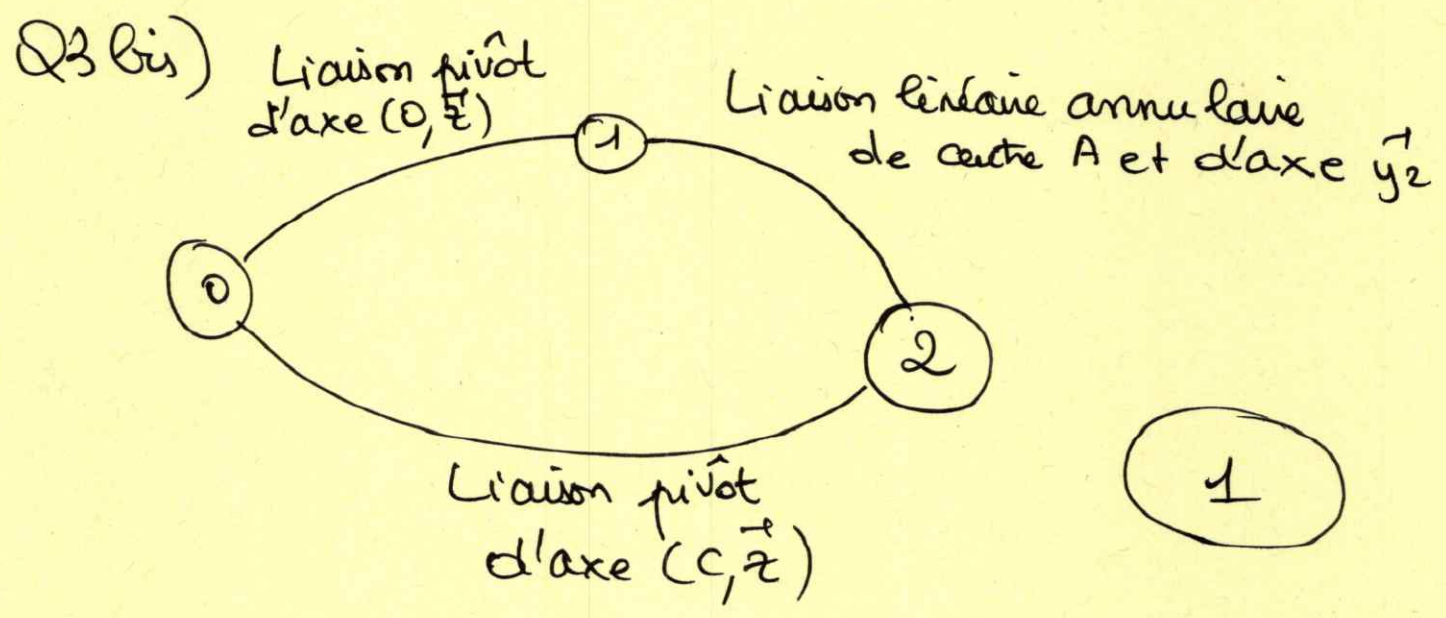 Q3 bis)
Liaison pivôt
d'axe (O, z⃗)
1
Liaison linéaire annulaire
de centre A et d'axe y⃗2
0
2
1
Liaison pivôt
d'axe (C, z⃗)